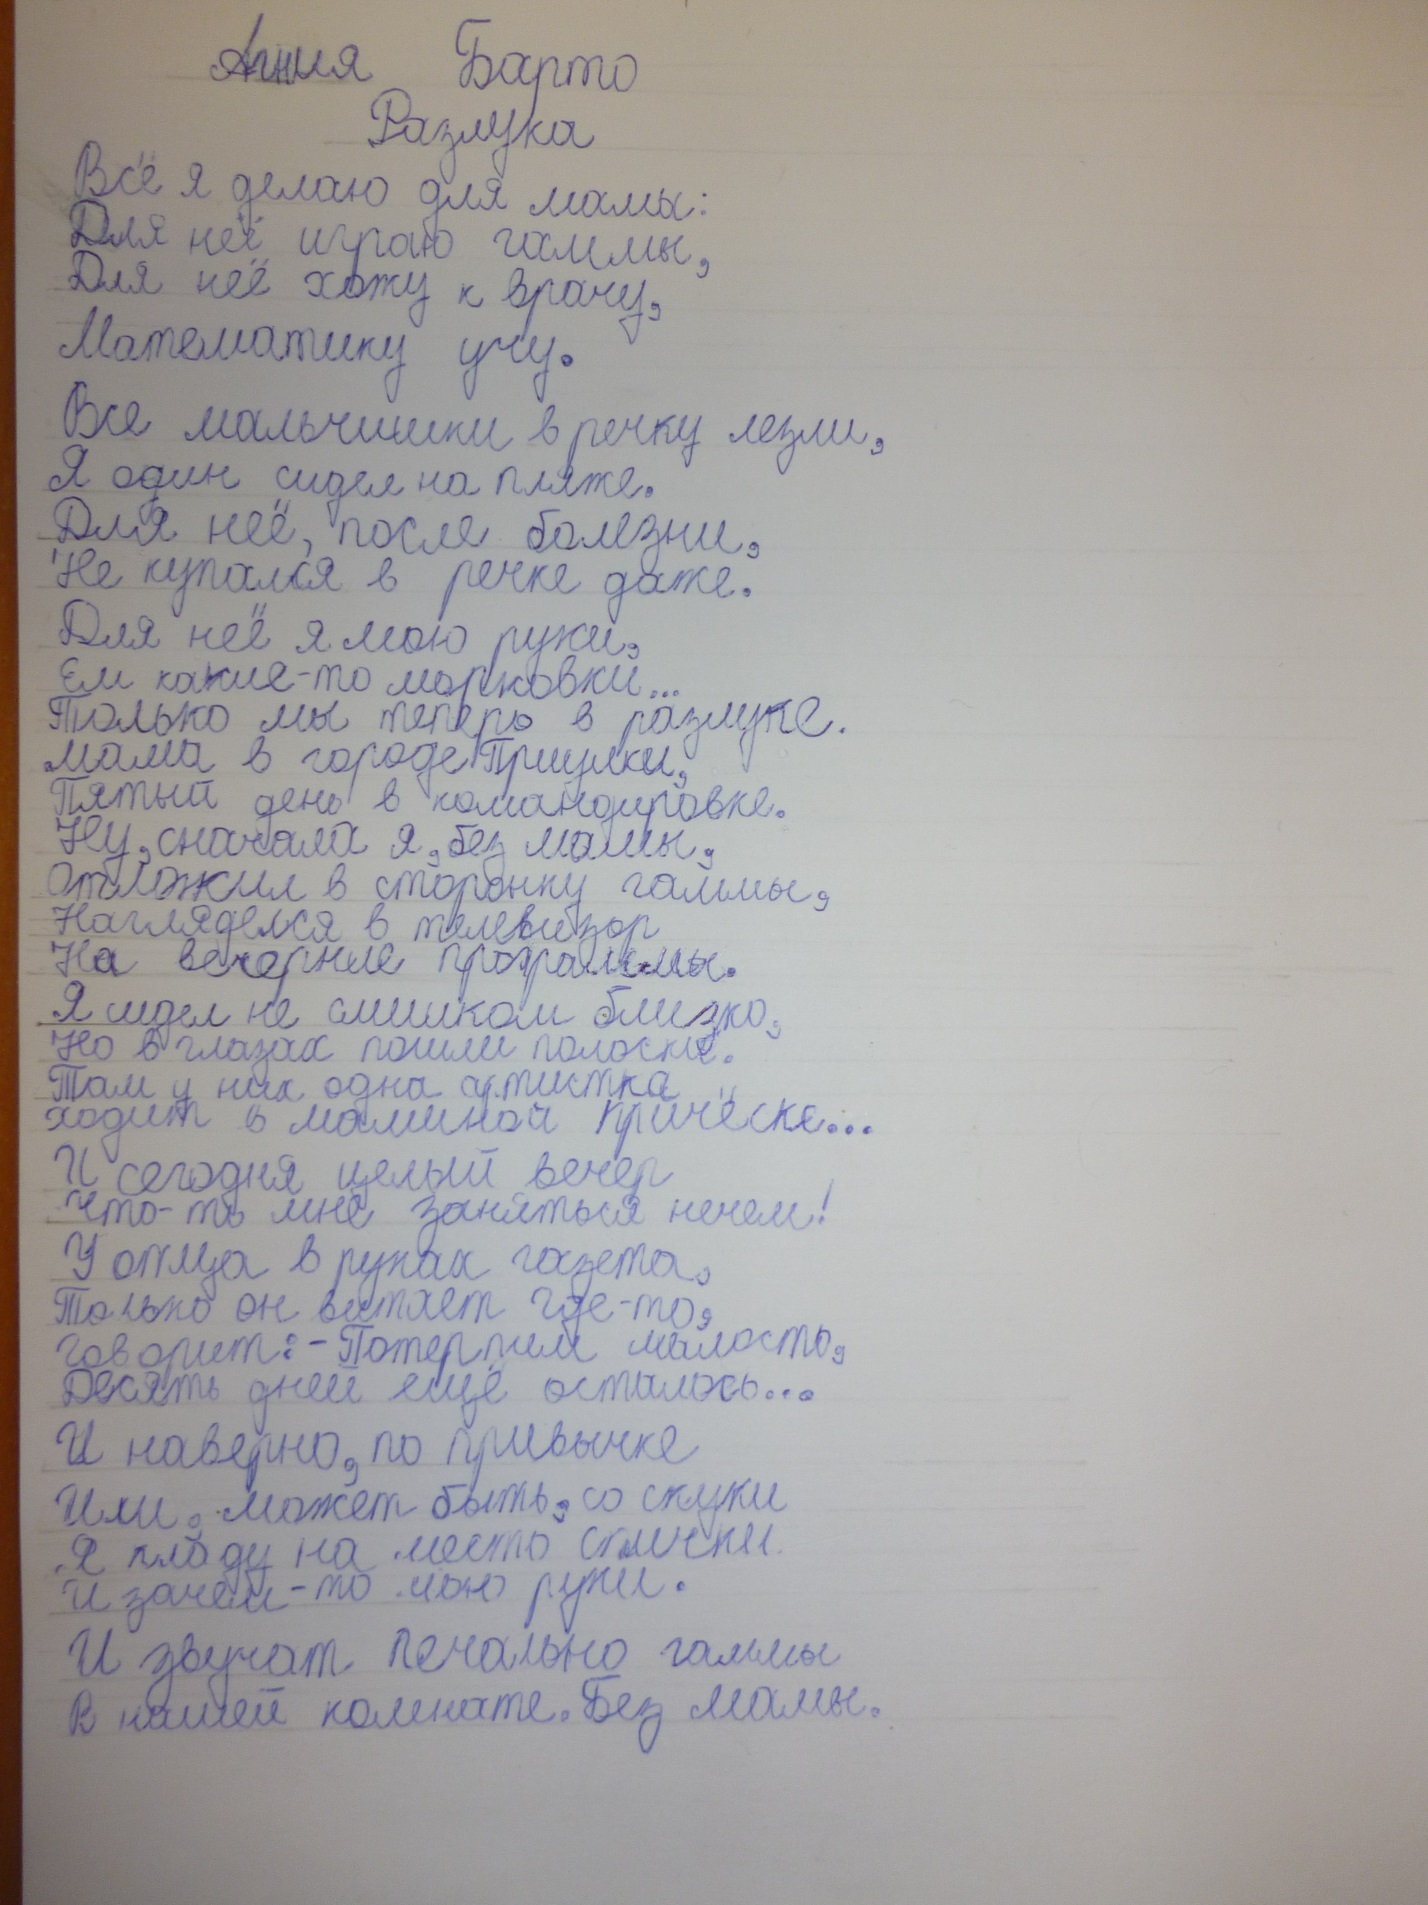 Агния Барто
Разлука
Всё я делаю для мамы:
Для неё играю гаммы,
Для неё хожу к врачу,
Математику учу.
Все мальчишки в речку лезли,
Я один сидел на пляже.
Для неё, после болезни,
Не купался в речке даже.
Для неё я мою руки,
Ем какие-то морковки...
Только мы теперь в разлуке.
Мама в городе Прилуки,
Пятый день в командировке.
Ну, сначала я, без мамы,
Отложил в сторонку гаммы,
Нагляделся в телевизор
На вечерние программы.
Я сидел не слишком близко,
Но в глазах пошли полоски.
Там у них одна артистка
ходит в маминой причёске...
И сегодня целый вечер
Что-то мне заняться нечем!
У отца в руках газета,
Только он витает где-то,
говорит: - Потерпим малость,
Десять дней ещё осталось...
И наверно, по привычке
Или, может быть, со скуки
Я кладу на место спички
И зачем-то мою руки.
И звучат печально гаммы
В нашей комнате. Без мамы.